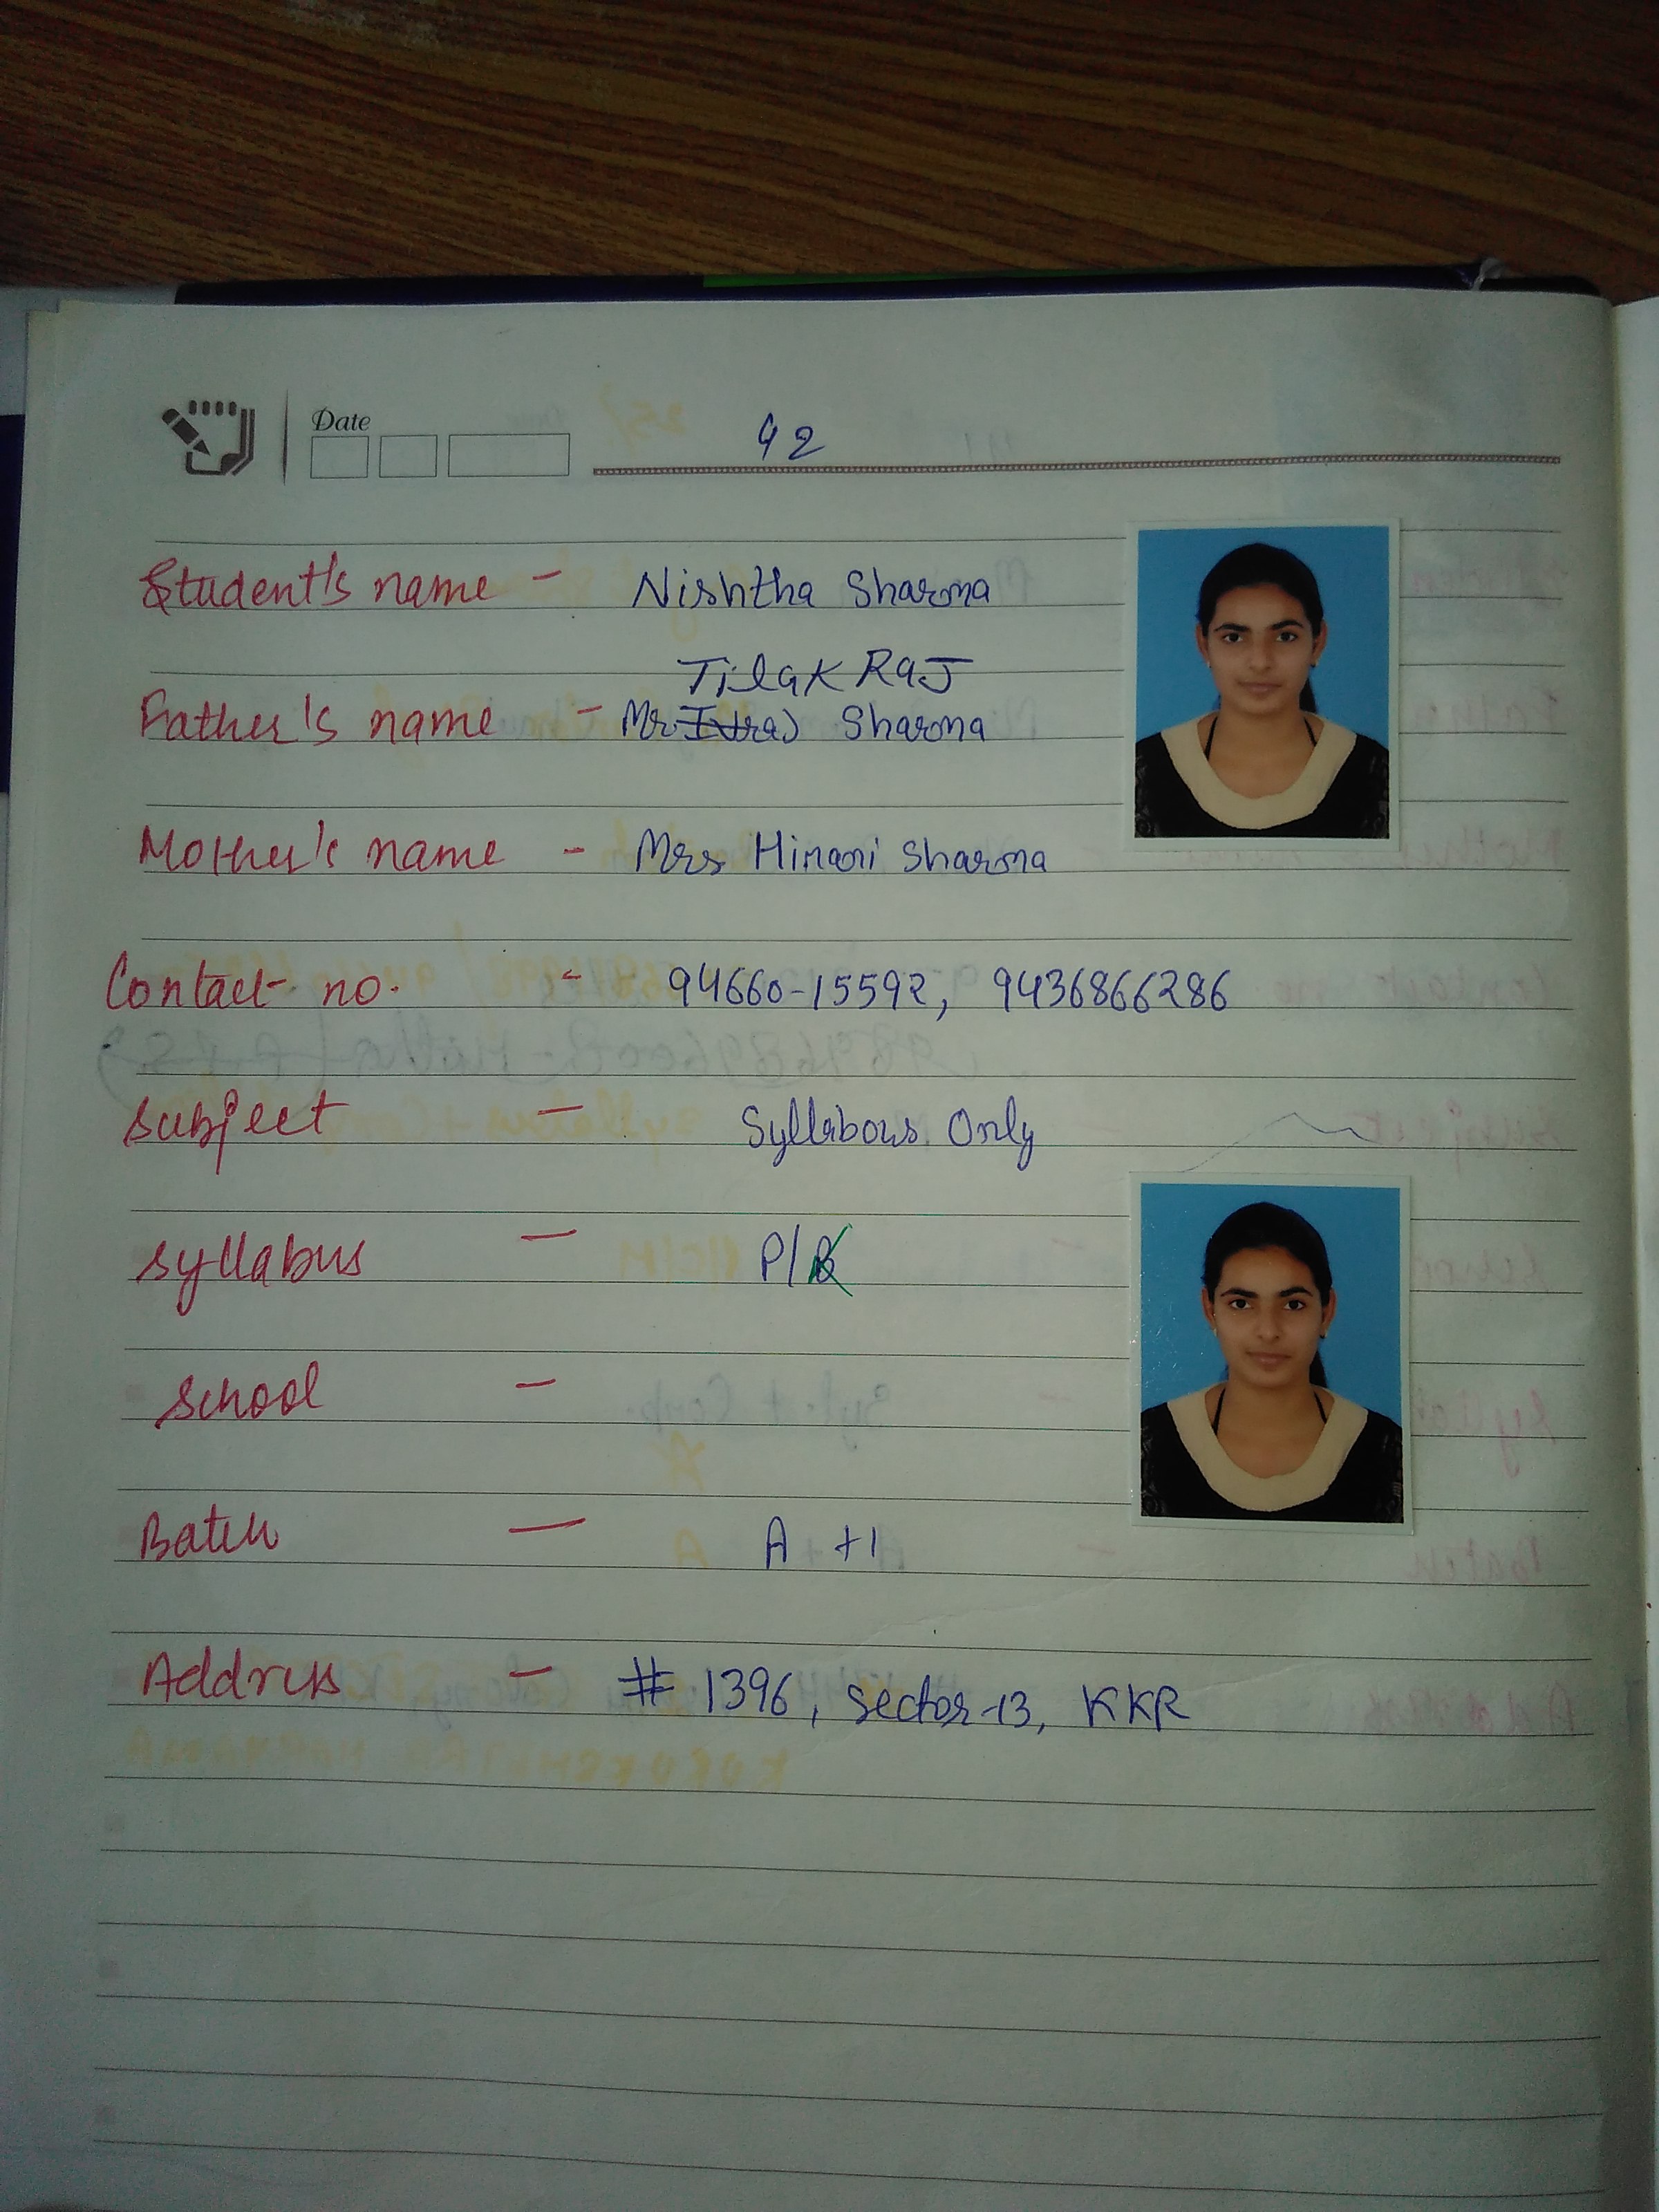 Date
92
Student's name - Nishtha Sharma
Tilak Raj
Father's name - Mr. Sharma
Mother's name - Mrs Himani Sharma
Contact no. - 94660-15592, 9436866286
Subject - Syllabous Only
Syllabus - P/B
School -
Batch - A +1
Address - # 1396, Sector-13, KKR